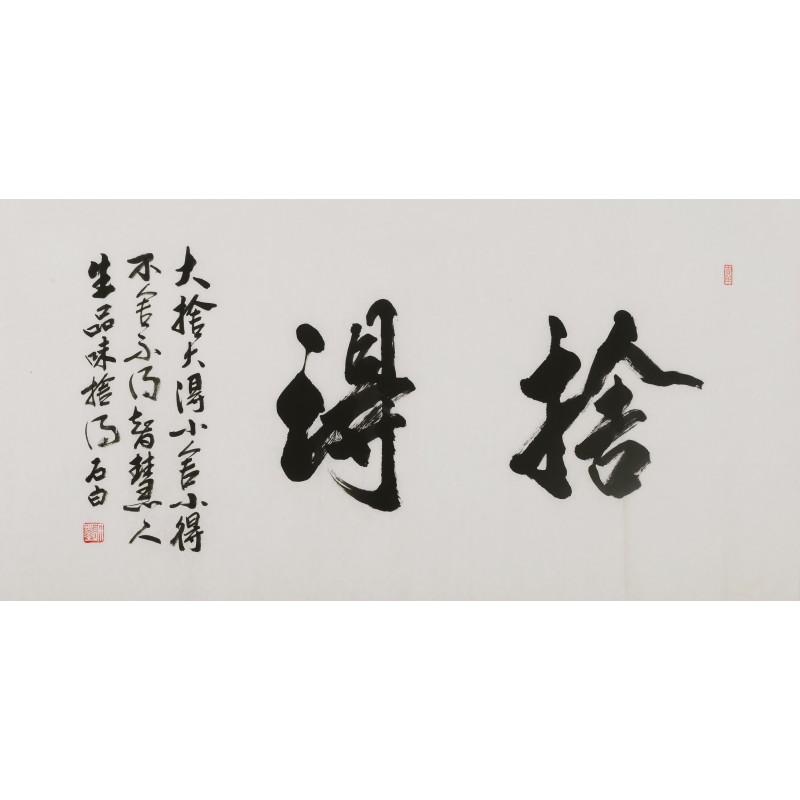 捨得
大捨大得小舍小得
不舍不得智慧人
生品味捨得 石白